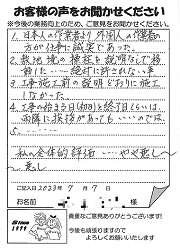 お客様の声をお聞かせください
※今後の業務向上のため、ご意見をお聞かせください
1. 日本人の作業者より外国人の作業者の
方が仕事に誠実であった。
2. 敷地境の標柱を説明なしで移
動した……絶対に許されない事
3. 工事施工前の説明どおりに施工し
なかった。
4. 工事の始まる日(初日)と終了日くらいは、
両隣に挨拶があっても……のでは
私の全体的評価……やや悪し〜
悪し
ご記入日 2023年 7月 7日
お名前 様
Since 1979
貴重なご意見ありがとうございます!
今後も頑張りますので
よろしくお願いいたします